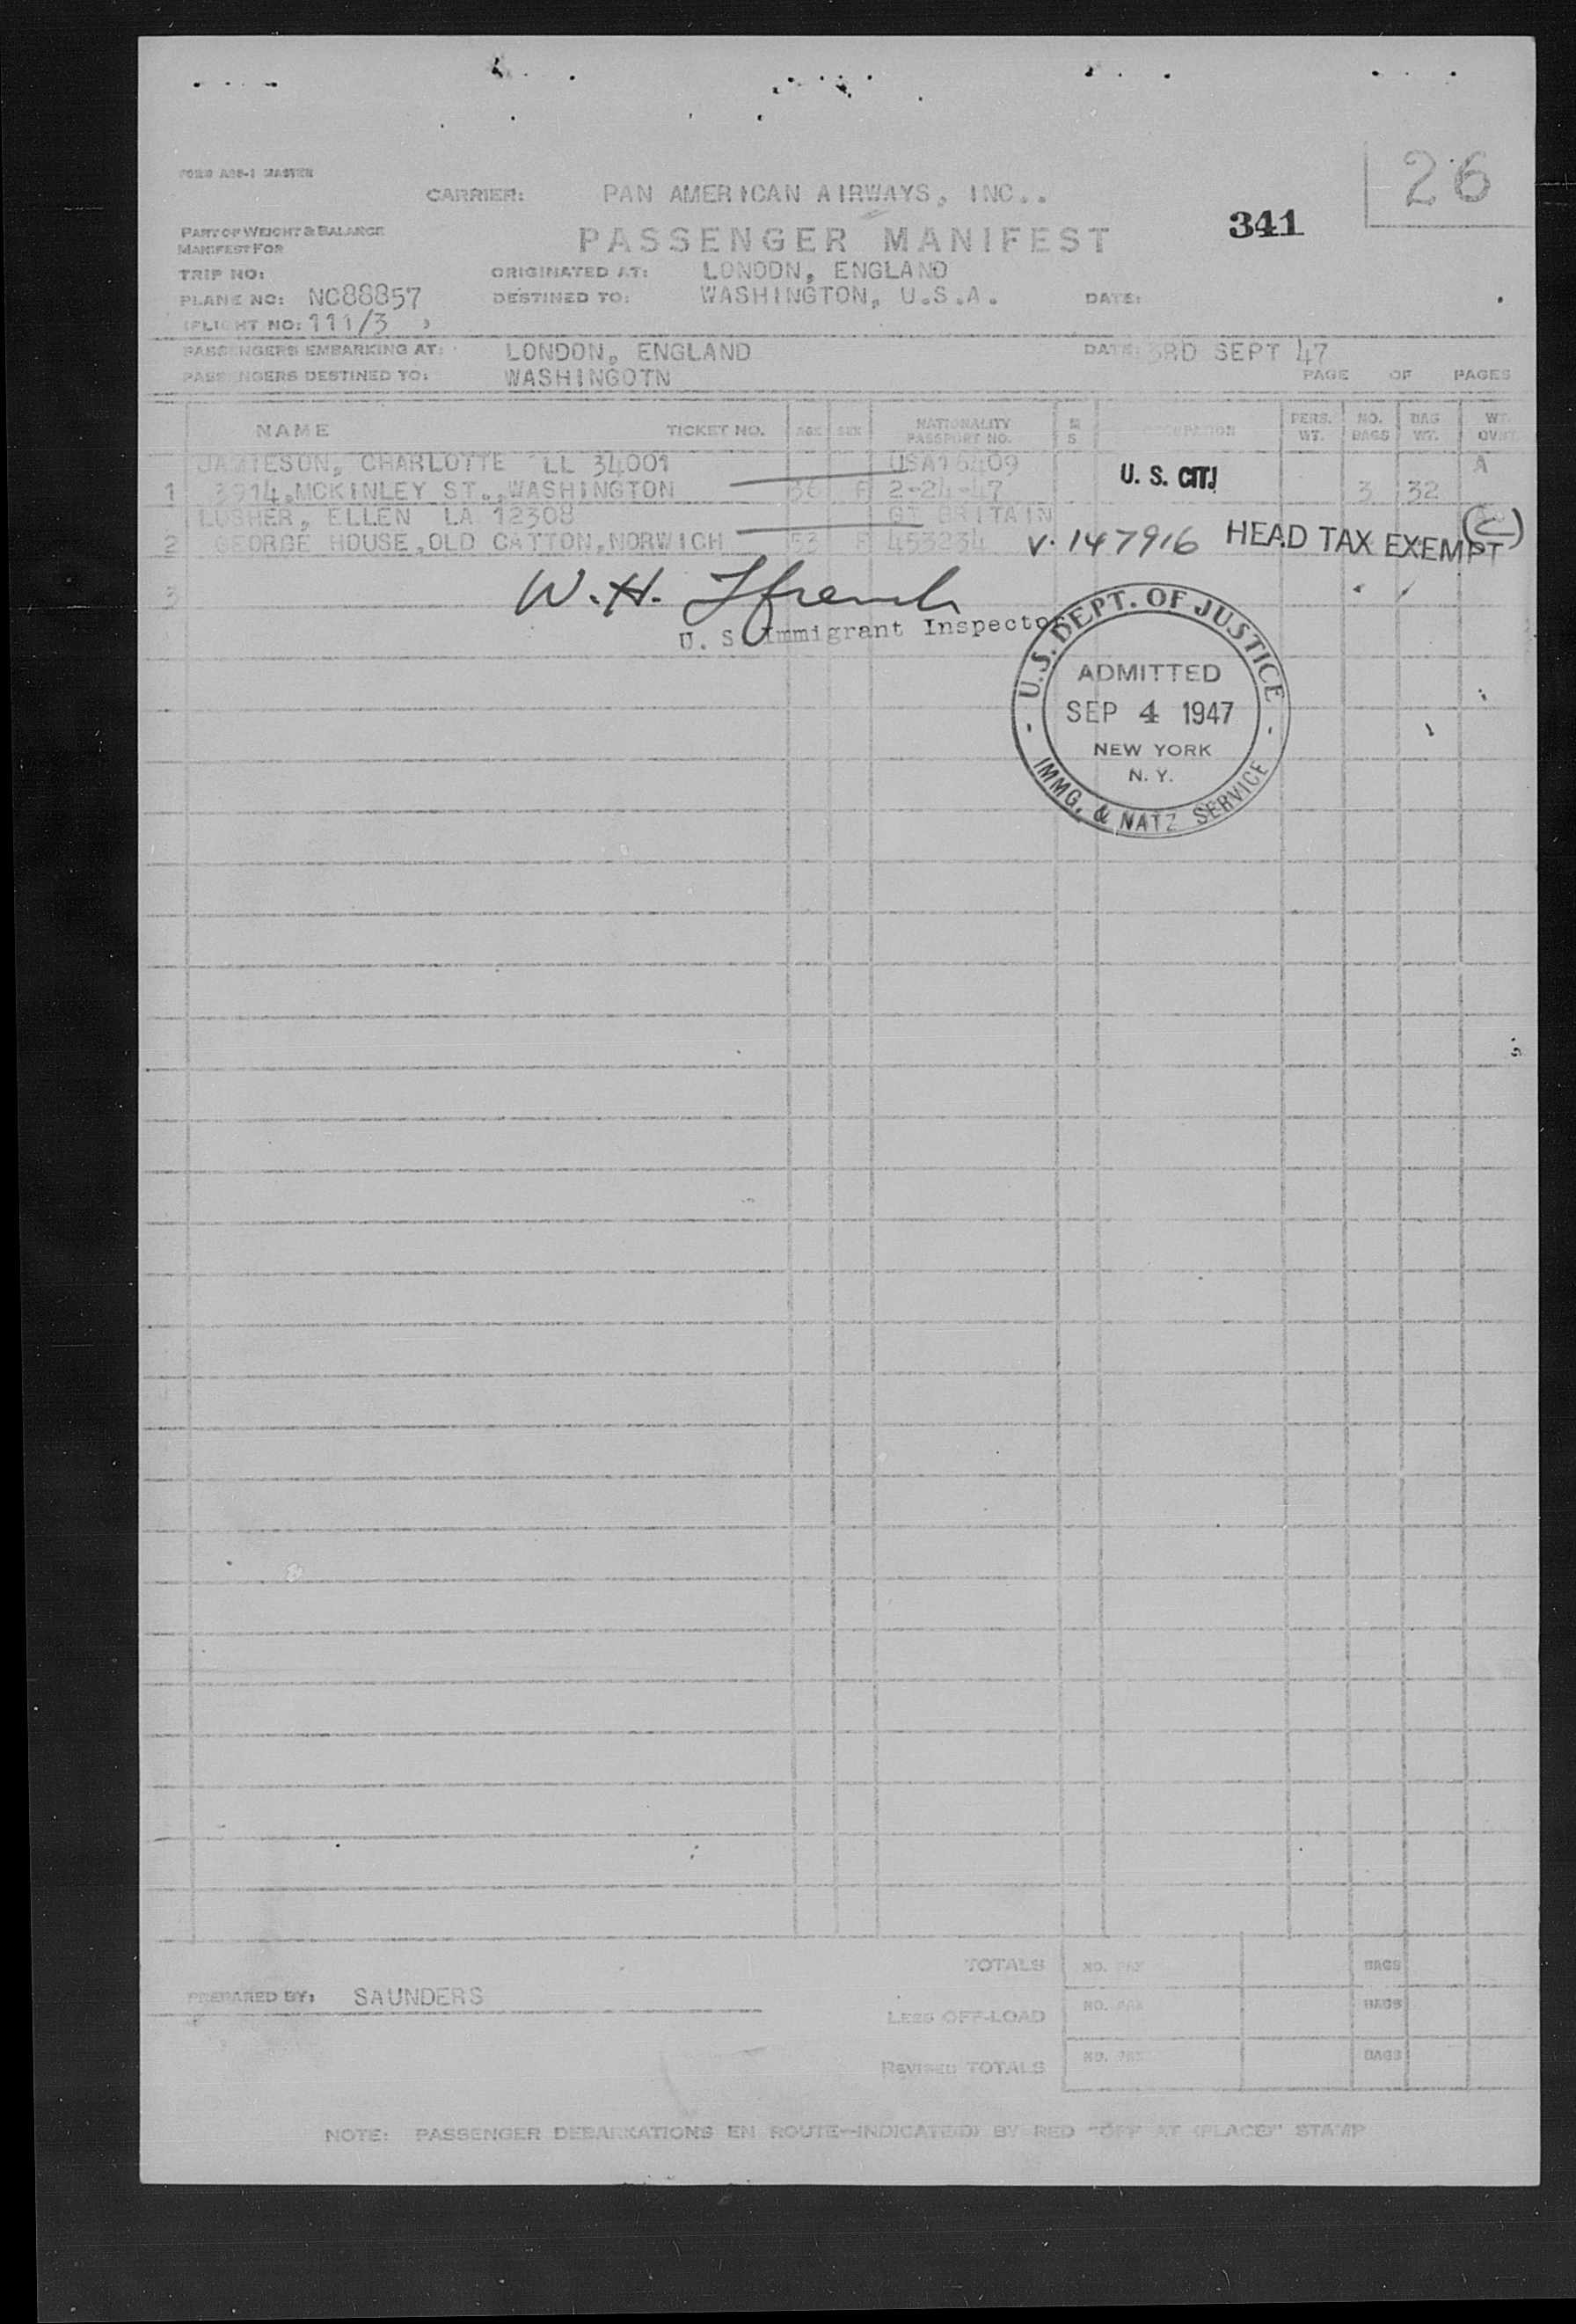 FORM ASS-1 MASTER
26
CARRIER: PAN AMERICAN AIRWAYS, INC..
341
PART OF WEIGHT & BALANCE
MANIFEST FOR
PASSENGER MANIFEST
TRIP NO: ORIGINATED AT: LONODN, ENGLAND
PLANE NO: NC88857 DESTINED TO: WASHINGTON, U.S.A. DATE:
(FLIGHT NO: 111/3 )
PASSENGERS EMBARKING AT: LONDON, ENGLAND DATE: 3RD SEPT 47
PASSENGERS DESTINED TO: WASHINGOTN PAGE OF PAGES
NAME TICKET NO. AGE SEX NATIONALITY PASSPORT NO. M S OCCUPATION PERS. WT. NO. BAGS BAG WT. WT.
JAMIESON, CHARLOTTE LL 34001 USA16409 A
1 3914,MCKINLEY ST.,WASHINGTON 36 F 2-24-47 U. S. CIT. 3 32
LUSHER, ELLEN LA 12308 GT BRITAIN
2 GEORGE HOUSE,OLD CATTON,NORWICH 53 F 453234 V. 147916 HEAD TAX EXEMPT (C)
3
W. H. Ffrench
U. S. Immigrant Inspector
U.S. DEPT. OF JUSTICE
ADMITTED
SEP 4 1947
NEW YORK
N. Y.
IMMG. & NATZ SERVICE
TOTALS NO. PAX BAGS
PREPARED BY: SAUNDERS
LESS OFF-LOAD NO. PAX BAGS
REVISED TOTALS NO. PAX BAGS
NOTE: PASSENGER DEBARKATIONS EN ROUTE—INDICATE(D) BY RED "OFF AT (PLACE)" STAMP